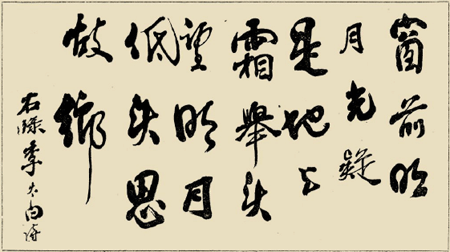 窗前明
月光疑
是地上
霜舉头
望明月
低头思
故鄉
右録李太白詩